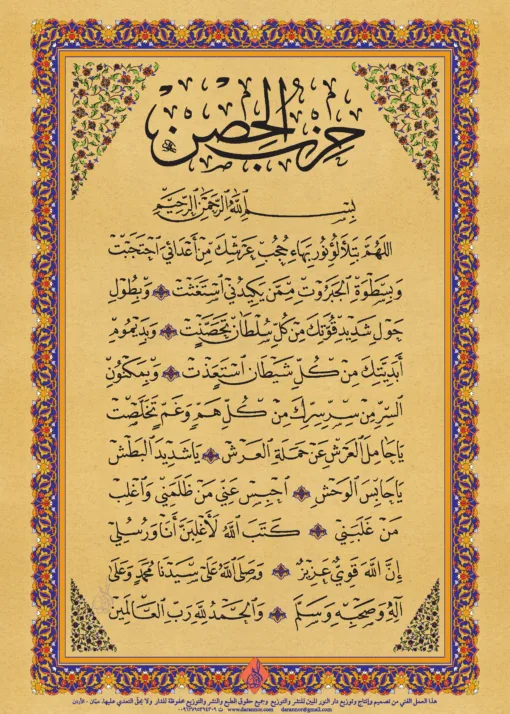 حِزْبُ الحِصْن
بِسْمِ اللَّهِ الرَّحْمَنِ الرَّحِيمِ
اللَّهُمَّ بِتَلَأْلُؤِ نُورِ بَهَاءِ حُجُبِ عَرْشِكَ مِنْ أَعْدَائِي احْتَجَبْتُ
وَبِسَطْوَةِ الجَبَرُوتِ مِمَّن يَكِيدُنِي اسْتَغَثْتُ وَبِطُولِ
حَوْلِ شَدِيدِ قُوَّتِكَ مِنْ كُلِّ سُلْطَانٍ تَحَصَّنْتُ وَبِدَيْمُومِ
أَبَدِيَّتِكَ مِنْ كُلِّ شَيْطَانٍ اسْتَعَذْتُ وَبِمَكْنُونِ
السِّرِّ مِنْ سِرِّ سِرِّكَ مِنْ كُلِّ هَمٍّ وَغَمٍّ تَخَلَّصْتُ
يَا حَامِلَ العَرْشِ عَنْ حَمَلَةِ العَرْشِ يَا شَدِيدَ البَطْشِ
يَا حَابِسَ الوَحْشِ احْبِسْ عَنِّي مَنْ ظَلَمَنِي وَاغْلِبْ
مَنْ غَلَبَنِي كَتَبَ اللَّهُ لَأَغْلِبَنَّ أَنَا وَرُسُلِي
إِنَّ اللَّهَ قَوِيٌّ عَزِيزٌ وَصَلَّى اللَّهُ عَلَى سَيِّدِنَا مُحَمَّدٍ وَعَلَى
آلِهِ وَصَحْبِهِ وَسَلَّمَ وَالْحَمْدُ لِلَّهِ رَبِّ العَالَمِينَ
هذا العمل الفني من تصميم وإنتاج وتوزيع دار النور المبين للنشر والتوزيع وجميع حقوق الطبع والنشر والتوزيع محفوظة للدار ولا يحل التعدي عليها. عمّان - الأردن
www.darannor.com darannor@gmail.com